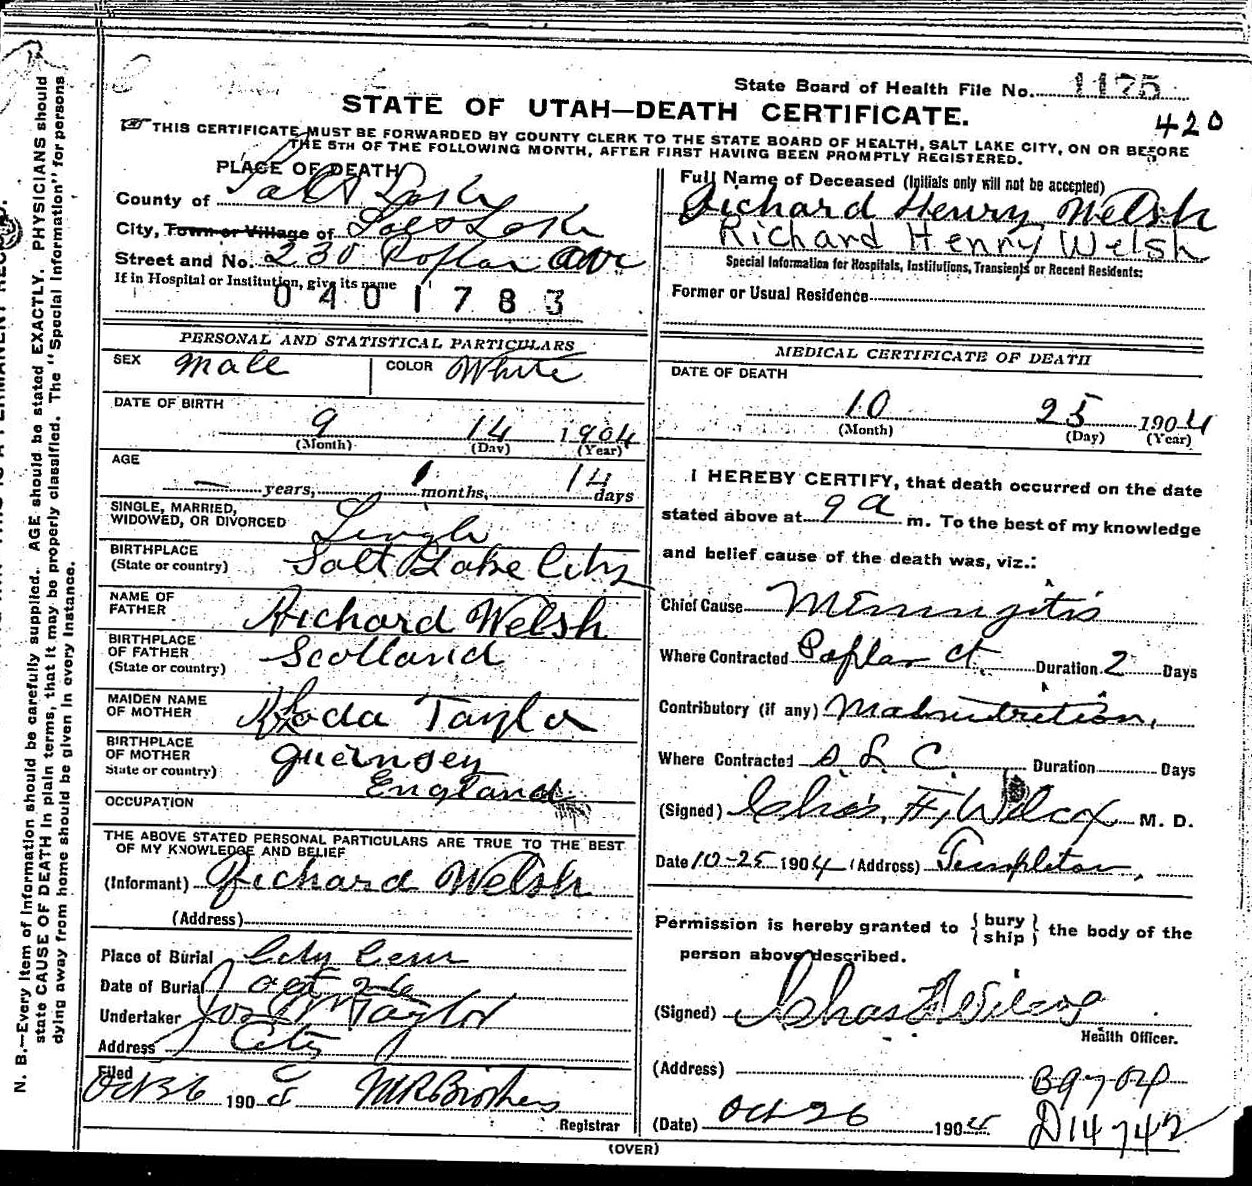 State Board of Health File No. 1175
STATE OF UTAH—DEATH CERTIFICATE.
420
THIS CERTIFICATE MUST BE FORWARDED BY COUNTY CLERK TO THE STATE BOARD OF HEALTH, SALT LAKE CITY, ON OR BEFORE
THE 5TH OF THE FOLLOWING MONTH, AFTER FIRST HAVING BEEN PROMPTLY REGISTERED.
PLACE OF DEATH
County of Salt Lake
City, Town or Village of Salt Lake
Street and No. 230 Poplar Ave
If in Hospital or Institution, give its name
0401783
PERSONAL AND STATISTICAL PARTICULARS
SEX Male COLOR White
DATE OF BIRTH
9 14 1904
(Month) (Day) (Year)
AGE
— years, 1 months, 14 days
SINGLE, MARRIED,
WIDOWED, OR DIVORCED Single
BIRTHPLACE
(State or country) Salt Lake City
NAME OF
FATHER Richard Welsh
BIRTHPLACE
OF FATHER
(State or country) Scotland
MAIDEN NAME
OF MOTHER Rhoda Taylor
BIRTHPLACE
OF MOTHER
State or country) Guernsey
England
OCCUPATION
THE ABOVE STATED PERSONAL PARTICULARS ARE TRUE TO THE BEST
OF MY KNOWLEDGE AND BELIEF
(Informant) Richard Welsh
(Address)
Place of Burial City Cem
Date of Burial Oct 26
Undertaker Jos Wm Taylor
Address City
Filed
Oct 26 1904
Registrar
Full Name of Deceased (Initials only will not be accepted)
Richard Henry Welsh
Richard Henry Welsh
Special Information for Hospitals, Institutions, Transients or Recent Residents:
Former or Usual Residence
MEDICAL CERTIFICATE OF DEATH
DATE OF DEATH
10 25 1904
(Month) (Day) (Year)
I HEREBY CERTIFY, that death occurred on the date
stated above at 9 a m. To the best of my knowledge
and belief cause of the death was, viz.:
Chief Cause Meningitis
Where Contracted Poplar ct. Duration 2 Days
Contributory (if any) Malnutrition,
Where Contracted S. L. C. Duration Days
(Signed) Chas. F. Wilcox M. D.
Date 10-25 1904 (Address) Templeton,
Permission is hereby granted to { bury ship } the body of the
person above described.
(Signed) Chas F Wilcox
Health Officer.
(Address)
B9704
(Date) Oct 26 1904
D14742
(OVER)
N. B.—Every item of information should be carefully supplied. AGE should be stated EXACTLY. PHYSICIANS should
state CAUSE OF DEATH in plain terms, that it may be properly classified. The "Special Information" for persons
dying away from home should be given in every instance.